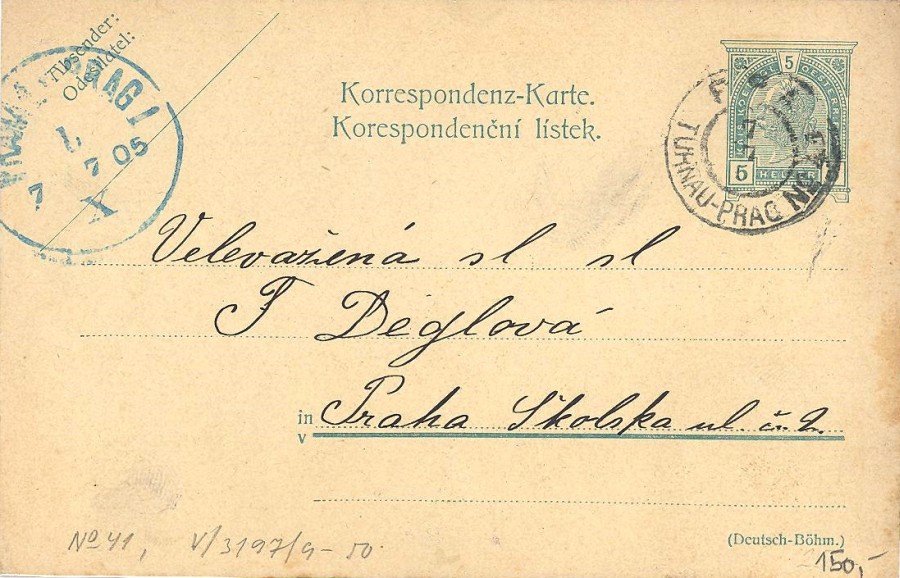 Absender:
Odesílatel:
PRAG 1
7 7 05
X
Korrespondenz-Karte.
Korespondenční lístek.
5
5 HELLER
TURNAU-PRAG
Velevážená sl sl
F Déglová
in Praha Školska ul. č. 2.
v
No 41, V/3197/9-50.
(Deutsch-Böhm.)
150,-